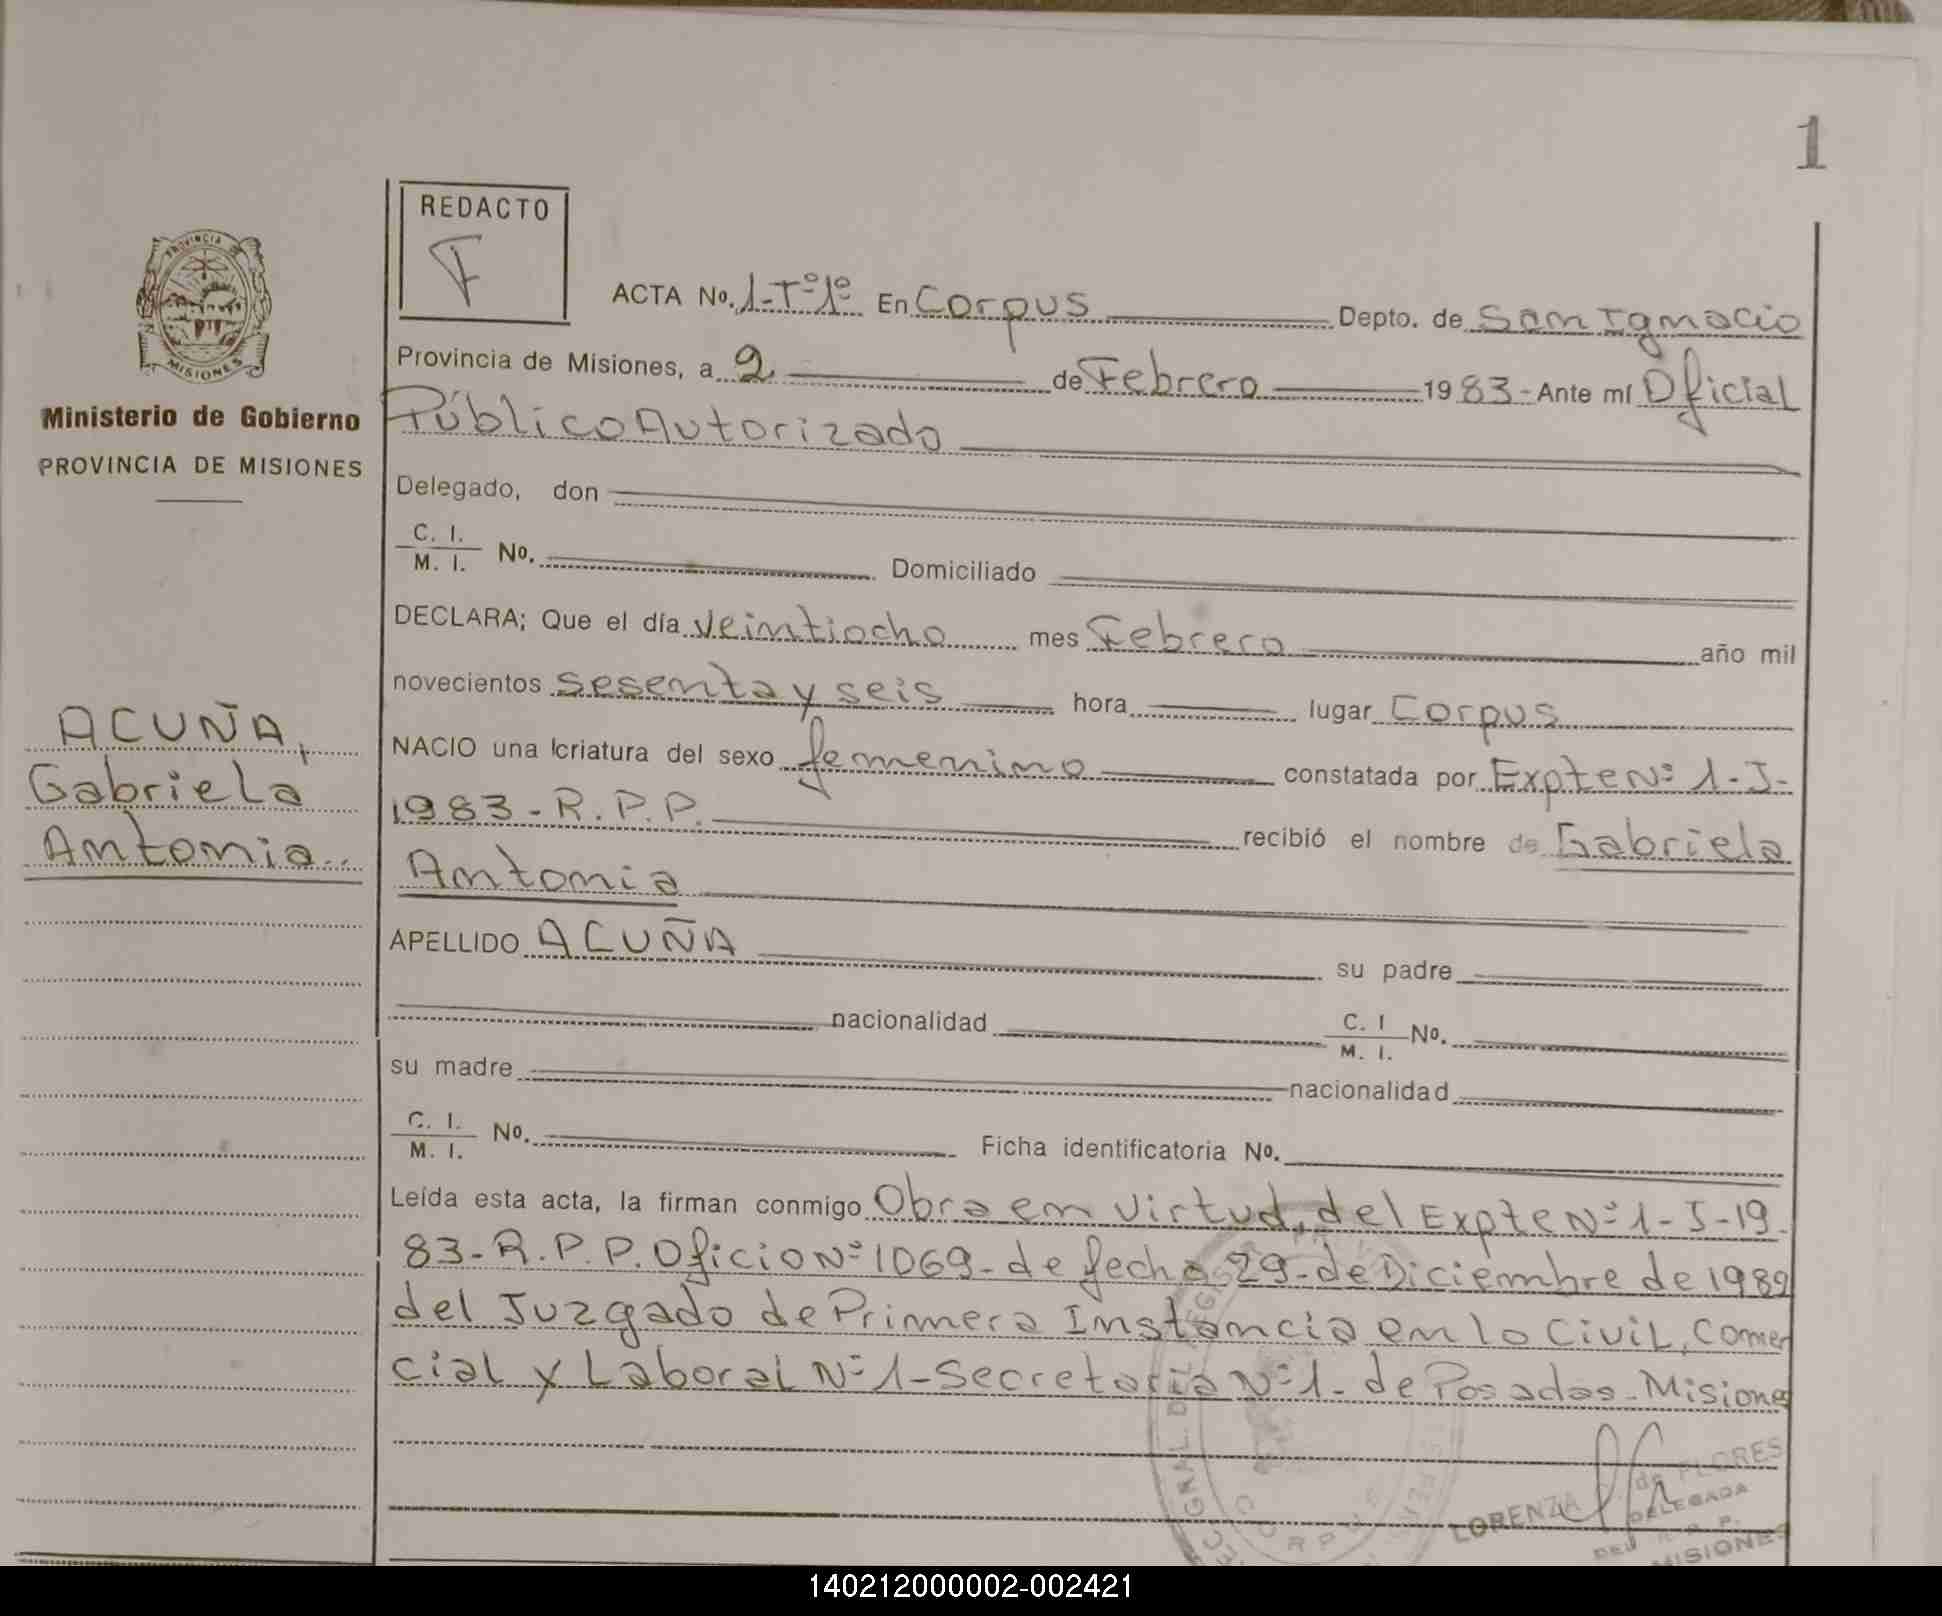 1
REDACTO
F
PROVINCIA DE
MISIONES
Ministerio de Gobierno
PROVINCIA DE MISIONES
ACUÑA,
Gabriela
Antonia
ACTA No. 1-Tº1º En Corpus Depto. de San Ignacio
Provincia de Misiones, a 2 de Febrero 1983- Ante mí Oficial
Público Autorizado
Delegado, don
C. I.
M. I. No. Domiciliado
DECLARA; Que el día veintiocho mes Febrero año mil
novecientos sesenta y seis hora lugar Corpus
NACIO una criatura del sexo femenino constatada por Expte Nº 1-J-
1983-R.P.P. recibió el nombre de Gabriela
Antonia
APELLIDO ACUÑA su padre
nacionalidad C. I
M. I. No.
su madre nacionalidad
C. I.
M. I. No. Ficha identificatoria No.
Leída esta acta, la firman conmigo Obra en virtud, del Expte Nº 1-J-19
83-R.P.P. Oficio Nº 1069-de fecha 29-de Diciembre de 1982
del Juzgado de Primera Instancia en lo Civil, Comer
cial y Laboral Nº 1-Secretaria Nº 1- de Posadas-Misiones
LORENZA de FLORES
DELEGADA
DEL R. P. P.
MISIONES
CORPUS
140212000002-002421